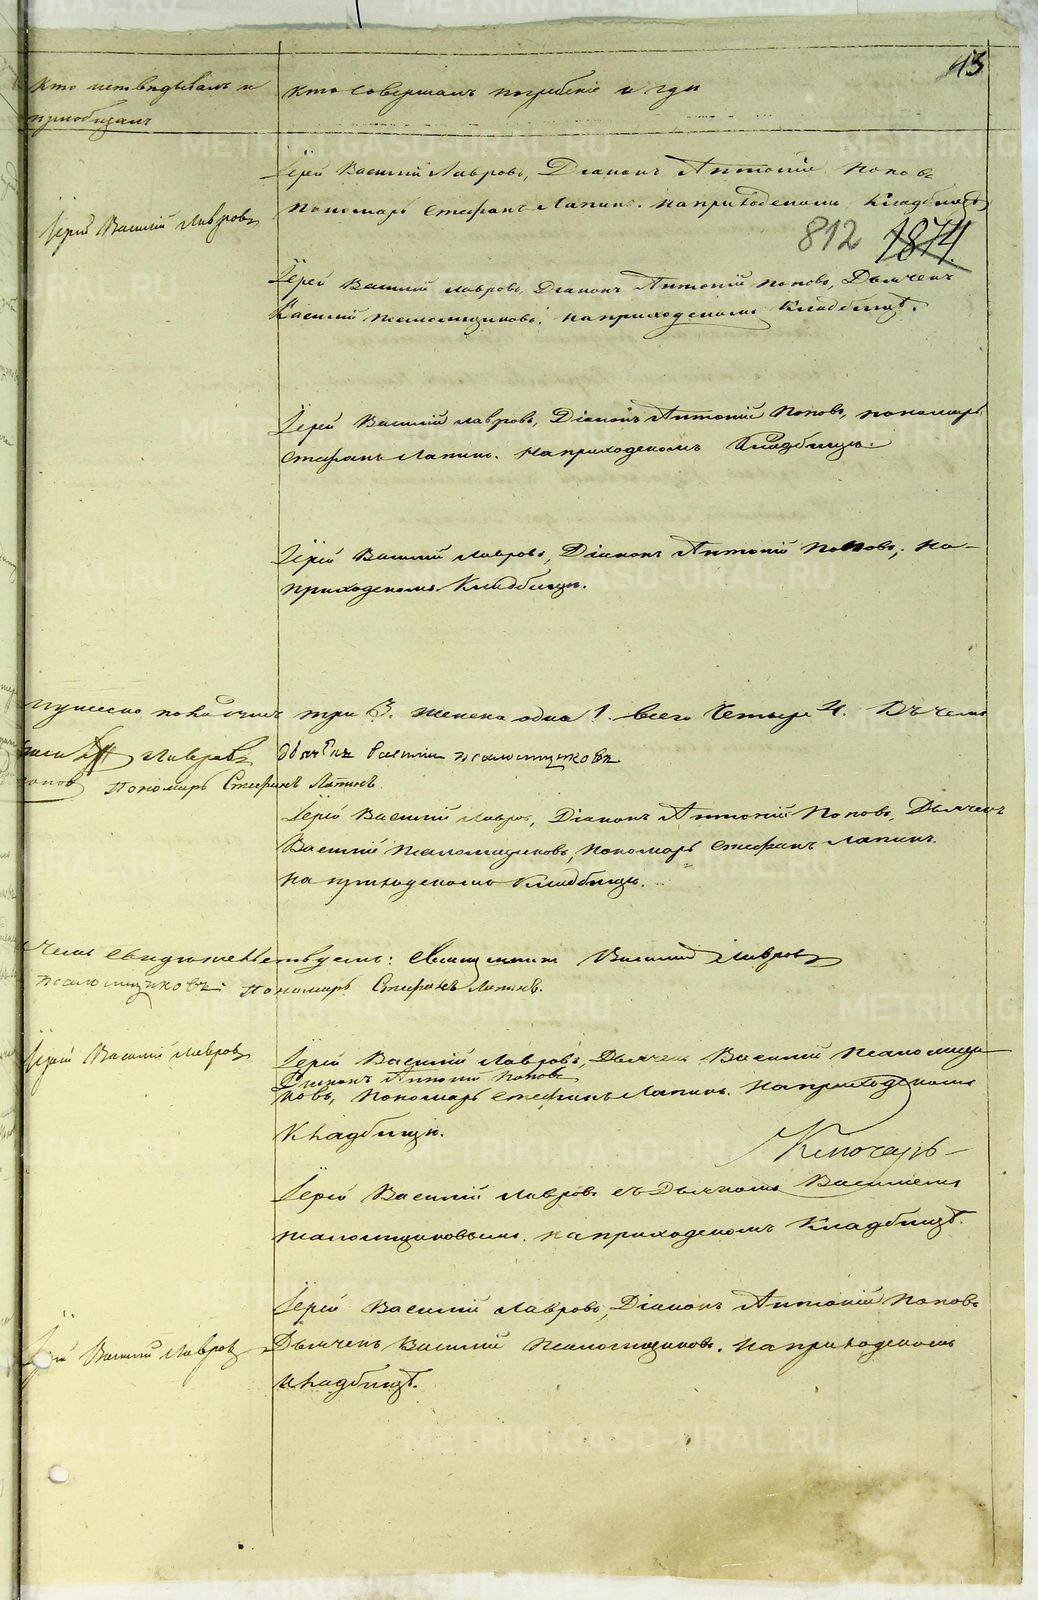 13
Кто исповѣдывалъ и
пріобщалъ
Кто совершалъ погребеніе и гдѣ
Іерей Василій Лавровъ
Іерей Василій Лавровъ, Діаконъ Антоній Поповъ
пономарь Стефанъ Лапинъ. На приходскомъ Кладбищѣ
812 1874
Іерей Василій Лавровъ, Діаконъ Антоній Поповъ, Дьячекъ
Василій Псаломщиковъ. На приходскомъ Кладбищѣ.
Іерей Василій Лавровъ, Діаконъ Антоній Поповъ, пономарь
Стефанъ Лапинъ. На приходскомъ Кладбищѣ.
Іерей Василій Лавровъ, Діаконъ Антоній Поповъ, На-
приходскомъ Кладбищѣ.
мужеска пола три 3. женска одна 1. всего Четыре 4. Въ чемъ
Лавровъ Дьячекъ Василій Псаломщиковъ
Пономарь Стефанъ Лапинъ.
Іерей Василій Лавровъ, Діаконъ Антоній Поповъ, Дьячекъ
Василій Псаломщиковъ, Пономарь Стефанъ Лапинъ.
На приходскомъ Кладбищѣ.
чемъ свидѣтельствуемъ: Священникъ Василій Лавровъ
Псаломщиковъ. Пономарь Стефанъ Лапинъ.
Іерей Василій Лавровъ
Іерей Василій Лавровъ, Дьячекъ Василій Псаломщи-
Діаконъ Антоній Поповъ
ковъ, Пономарь Стефанъ Лапинъ. На приходскомъ
Кладбищѣ.
Ключарь
Іерей Василій Лавровъ съ Дьячкомъ Василіемъ
Псаломщиковымъ. На приходскомъ Кладбищѣ.
Іерей Василій Лавровъ
Іерей Василій Лавровъ, Діаконъ Антоній Поповъ
Дьячекъ Василій Псаломщиковъ. На приходскомъ
Кладбищѣ.
METRIKI.GASO-URAL.RU